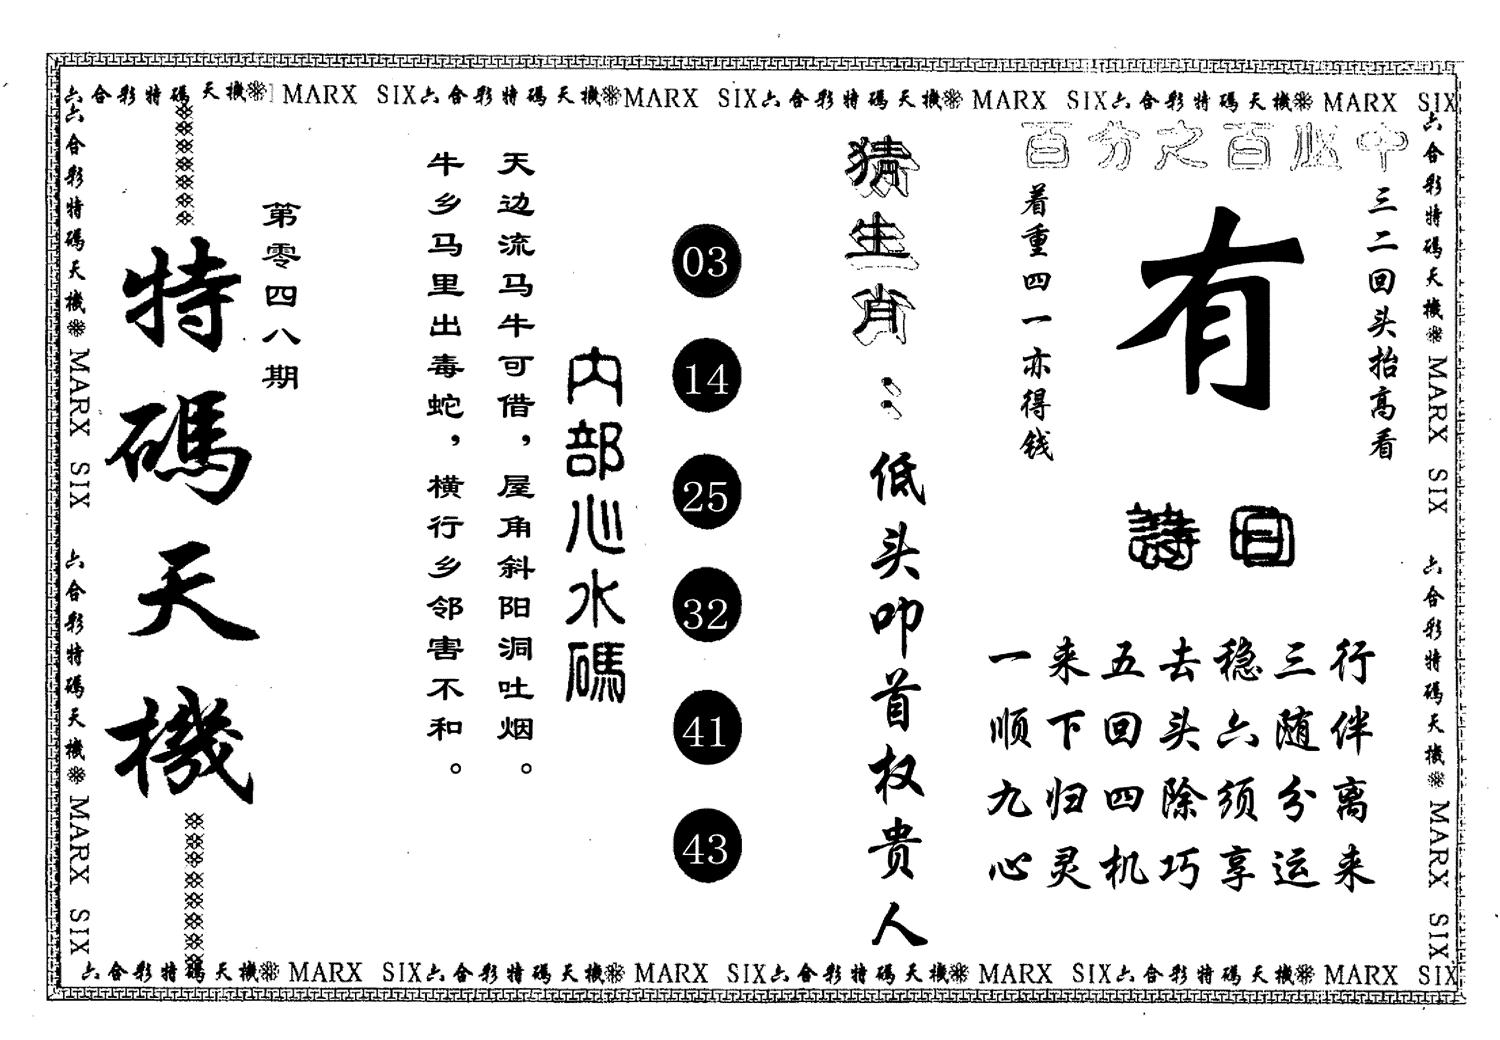 六合彩特碼天機 MARX SIX六合彩特碼天機MARX SIX六合彩特碼天機 MARX SIX六合彩特碼天機 MARX SIX
六合彩特碼天機 MARX SIX 六合彩特碼天機 MARX SIX
特碼天機
第零四八期
天边流马牛可借，屋角斜阳洞吐烟。
牛乡马里出毒蛇，横行乡邻害不和。
内部心水碼
03
14
25
32
41
43
猜生肖：低头叩首权贵人
百分之百必中
三二回头抬高看
有
着重四一亦得钱
詩曰
一来五去稳三行
顺下回头六随伴
九归四除须分离
心灵机巧享运来
六合彩特碼天機 MARX SIX 六合彩特碼天機 MARX SIX
六合彩特碼天機 MARX SIX六合彩特碼天機 MARX SIX六合彩特碼天機 MARX SIX六合彩特碼天機 MARX SIX